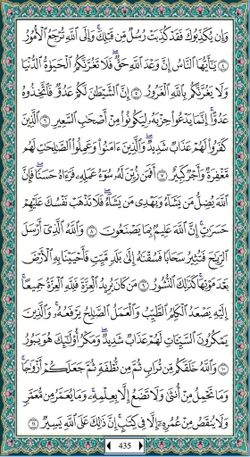 وَإِن يُكَذِّبُوكَ فَقَدۡ كُذِّبَتۡ رُسُلٞ مِّن قَبۡلِكَۚ وَإِلَى ٱللَّهِ تُرۡجَعُ ٱلۡأُمُورُ
٤ يَٰٓأَيُّهَا ٱلنَّاسُ إِنَّ وَعۡدَ ٱللَّهِ حَقّٞۖ فَلَا تَغُرَّنَّكُمُ ٱلۡحَيَوٰةُ ٱلدُّنۡيَا
وَلَا يَغُرَّنَّكُم بِٱللَّهِ ٱلۡغَرُورُ ٥ إِنَّ ٱلشَّيۡطَٰنَ لَكُمۡ عَدُوّٞ فَٱتَّخِذُوهُ
عَدُوًّاۚ إِنَّمَا يَدۡعُواْ حِزۡبَهُۥ لِيَكُونُواْ مِنۡ أَصۡحَٰبِ ٱلسَّعِيرِ ٦ ٱلَّذِينَ
كَفَرُواْ لَهُمۡ عَذَابٞ شَدِيدٞۖ وَٱلَّذِينَ ءَامَنُواْ وَعَمِلُواْ ٱلصَّٰلِحَٰتِ لَهُم
مَّغۡفِرَةٞ وَأَجۡرٞ كَبِيرٌ ٧ أَفَمَن زُيِّنَ لَهُۥ سُوٓءُ عَمَلِهِۦ فَرَءَاهُ حَسَنٗاۖ فَإِنَّ
ٱللَّهَ يُضِلُّ مَن يَشَآءُ وَيَهۡدِي مَن يَشَآءُۖ فَلَا تَذۡهَبۡ نَفۡسُكَ عَلَيۡهِمۡ
حَسَرَٰتٍۚ إِنَّ ٱللَّهَ عَلِيمُۢ بِمَا يَصۡنَعُونَ ٨ وَٱللَّهُ ٱلَّذِيٓ أَرۡسَلَ
ٱلرِّيَٰحَ فَتُثِيرُ سَحَابٗا فَسُقۡنَٰهُ إِلَىٰ بَلَدٖ مَّيِّتٖ فَأَحۡيَيۡنَا بِهِ ٱلۡأَرۡضَ
بَعۡدَ مَوۡتِهَاۚ كَذَٰلِكَ ٱلنُّشُورُ ٩ مَن كَانَ يُرِيدُ ٱلۡعِزَّةَ فَلِلَّهِ ٱلۡعِزَّةُ جَمِيعًاۚ
إِلَيۡهِ يَصۡعَدُ ٱلۡكَلِمُ ٱلطَّيِّبُ وَٱلۡعَمَلُ ٱلصَّٰلِحُ يَرۡفَعُهُۥۚ وَٱلَّذِينَ
يَمۡكُرُونَ ٱلسَّيِّـَٔاتِ لَهُمۡ عَذَابٞ شَدِيدٞۖ وَمَكۡرُ أُوْلَٰٓئِكَ هُوَ يَبُورُ
١٠ وَٱللَّهُ خَلَقَكُم مِّن تُرَابٖ ثُمَّ مِن نُّطۡفَةٖ ثُمَّ جَعَلَكُمۡ أَزۡوَٰجٗاۚ
وَمَا تَحۡمِلُ مِنۡ أُنثَىٰ وَلَا تَضَعُ إِلَّا بِعِلۡمِهِۦۚ وَمَا يُعَمَّرُ مِن مُّعَمَّرٖ
وَلَا يُنقَصُ مِنۡ عُمُرِهِۦٓ إِلَّا فِي كِتَٰبٍۚ إِنَّ ذَٰلِكَ عَلَى ٱللَّهِ يَسِيرٞ ١١
435